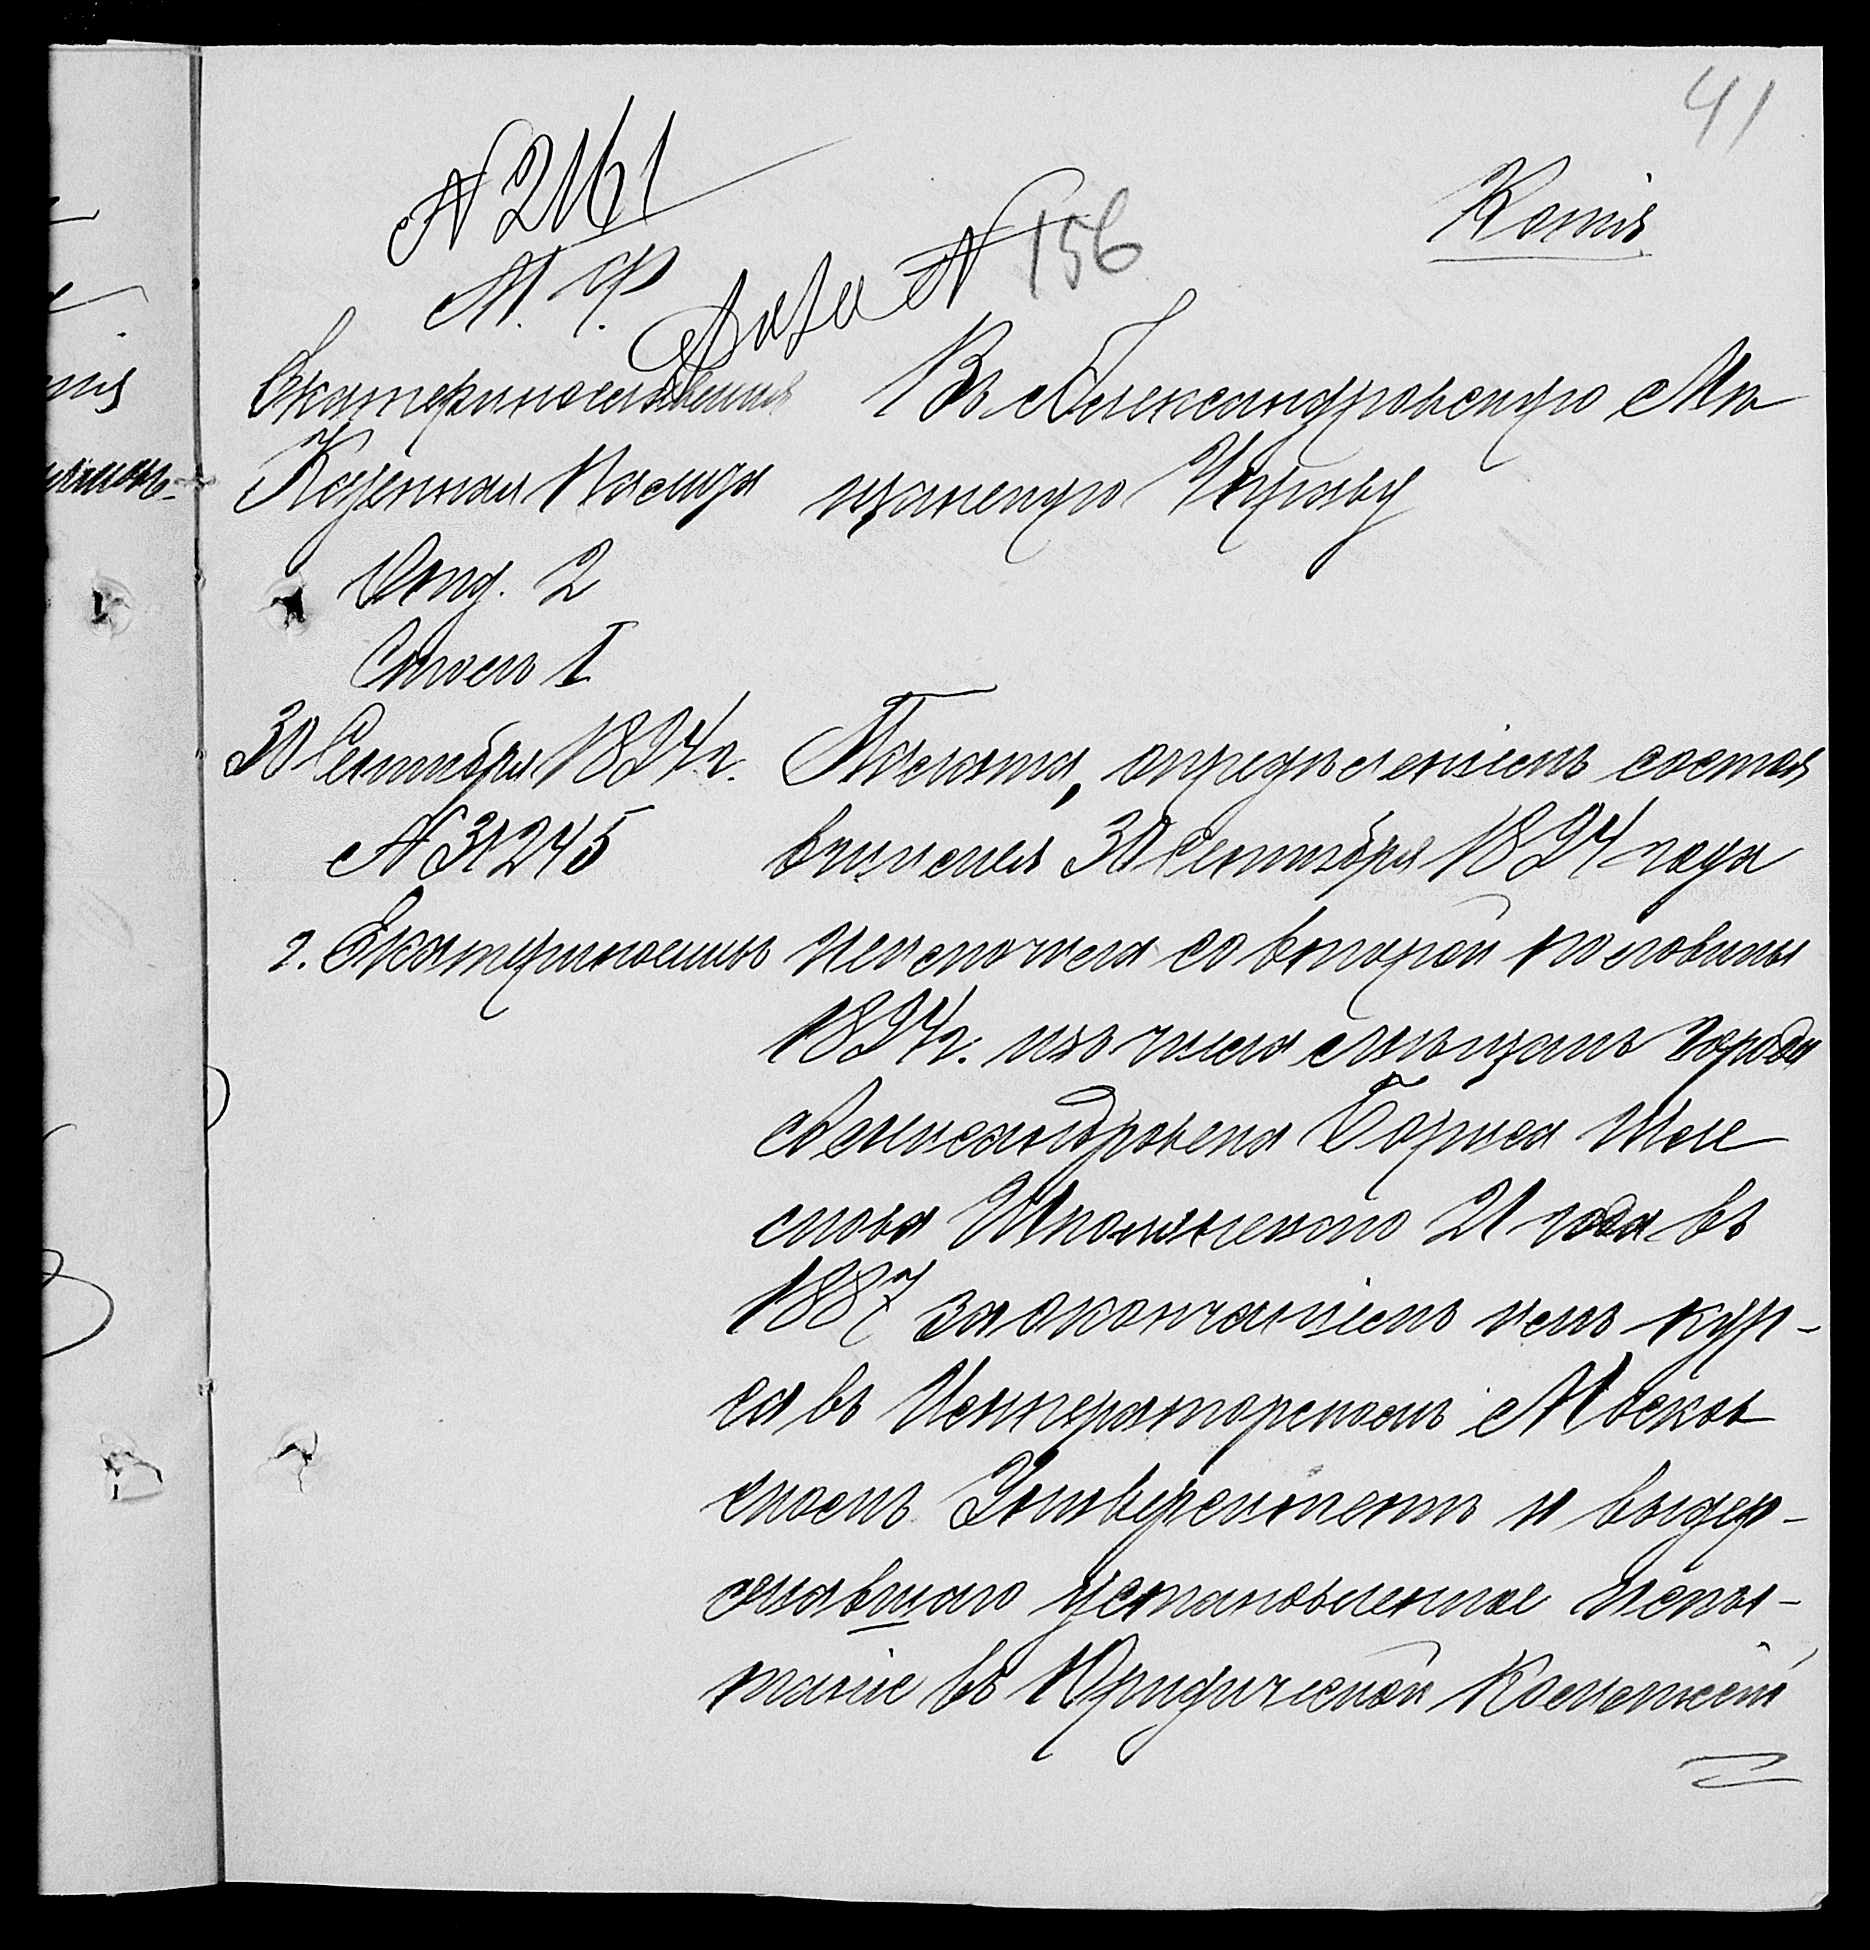 41
№ 2161
М. Ф.
Дѣло № 156
Копія
Екатеринославская
Казенная Палата
Отд. 2
Столъ I
30 Сентября 1894 г.
№ 31245
г. Екатеринославъ
Въ Александровскую Мѣ
щанскую Управу
Палата, опредѣленіемъ состоя
вшимся 30 Сентября 1894 года
исключила со второй половины
1894 г. изъ числа мѣщанъ города
Александровска Бориса
Школьнскаго 21 года въ
1887 за окончаніемъ имъ кур-
са въ Императорскомъ Москов
скомъ Университетѣ и выдер-
жавшаго установленное испы-
таніе въ Юридической Коммисіи